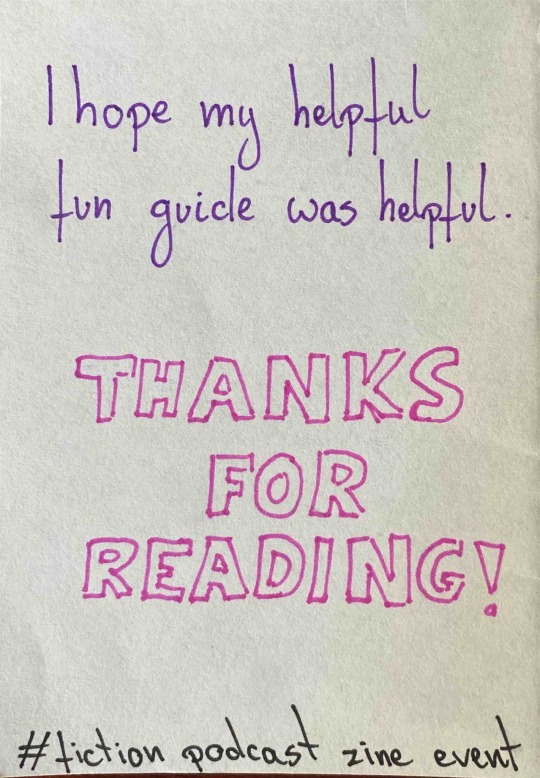 I hope my helpful
fun guide was helpful.
THANKS
FOR
READING!
#fiction podcast zine event